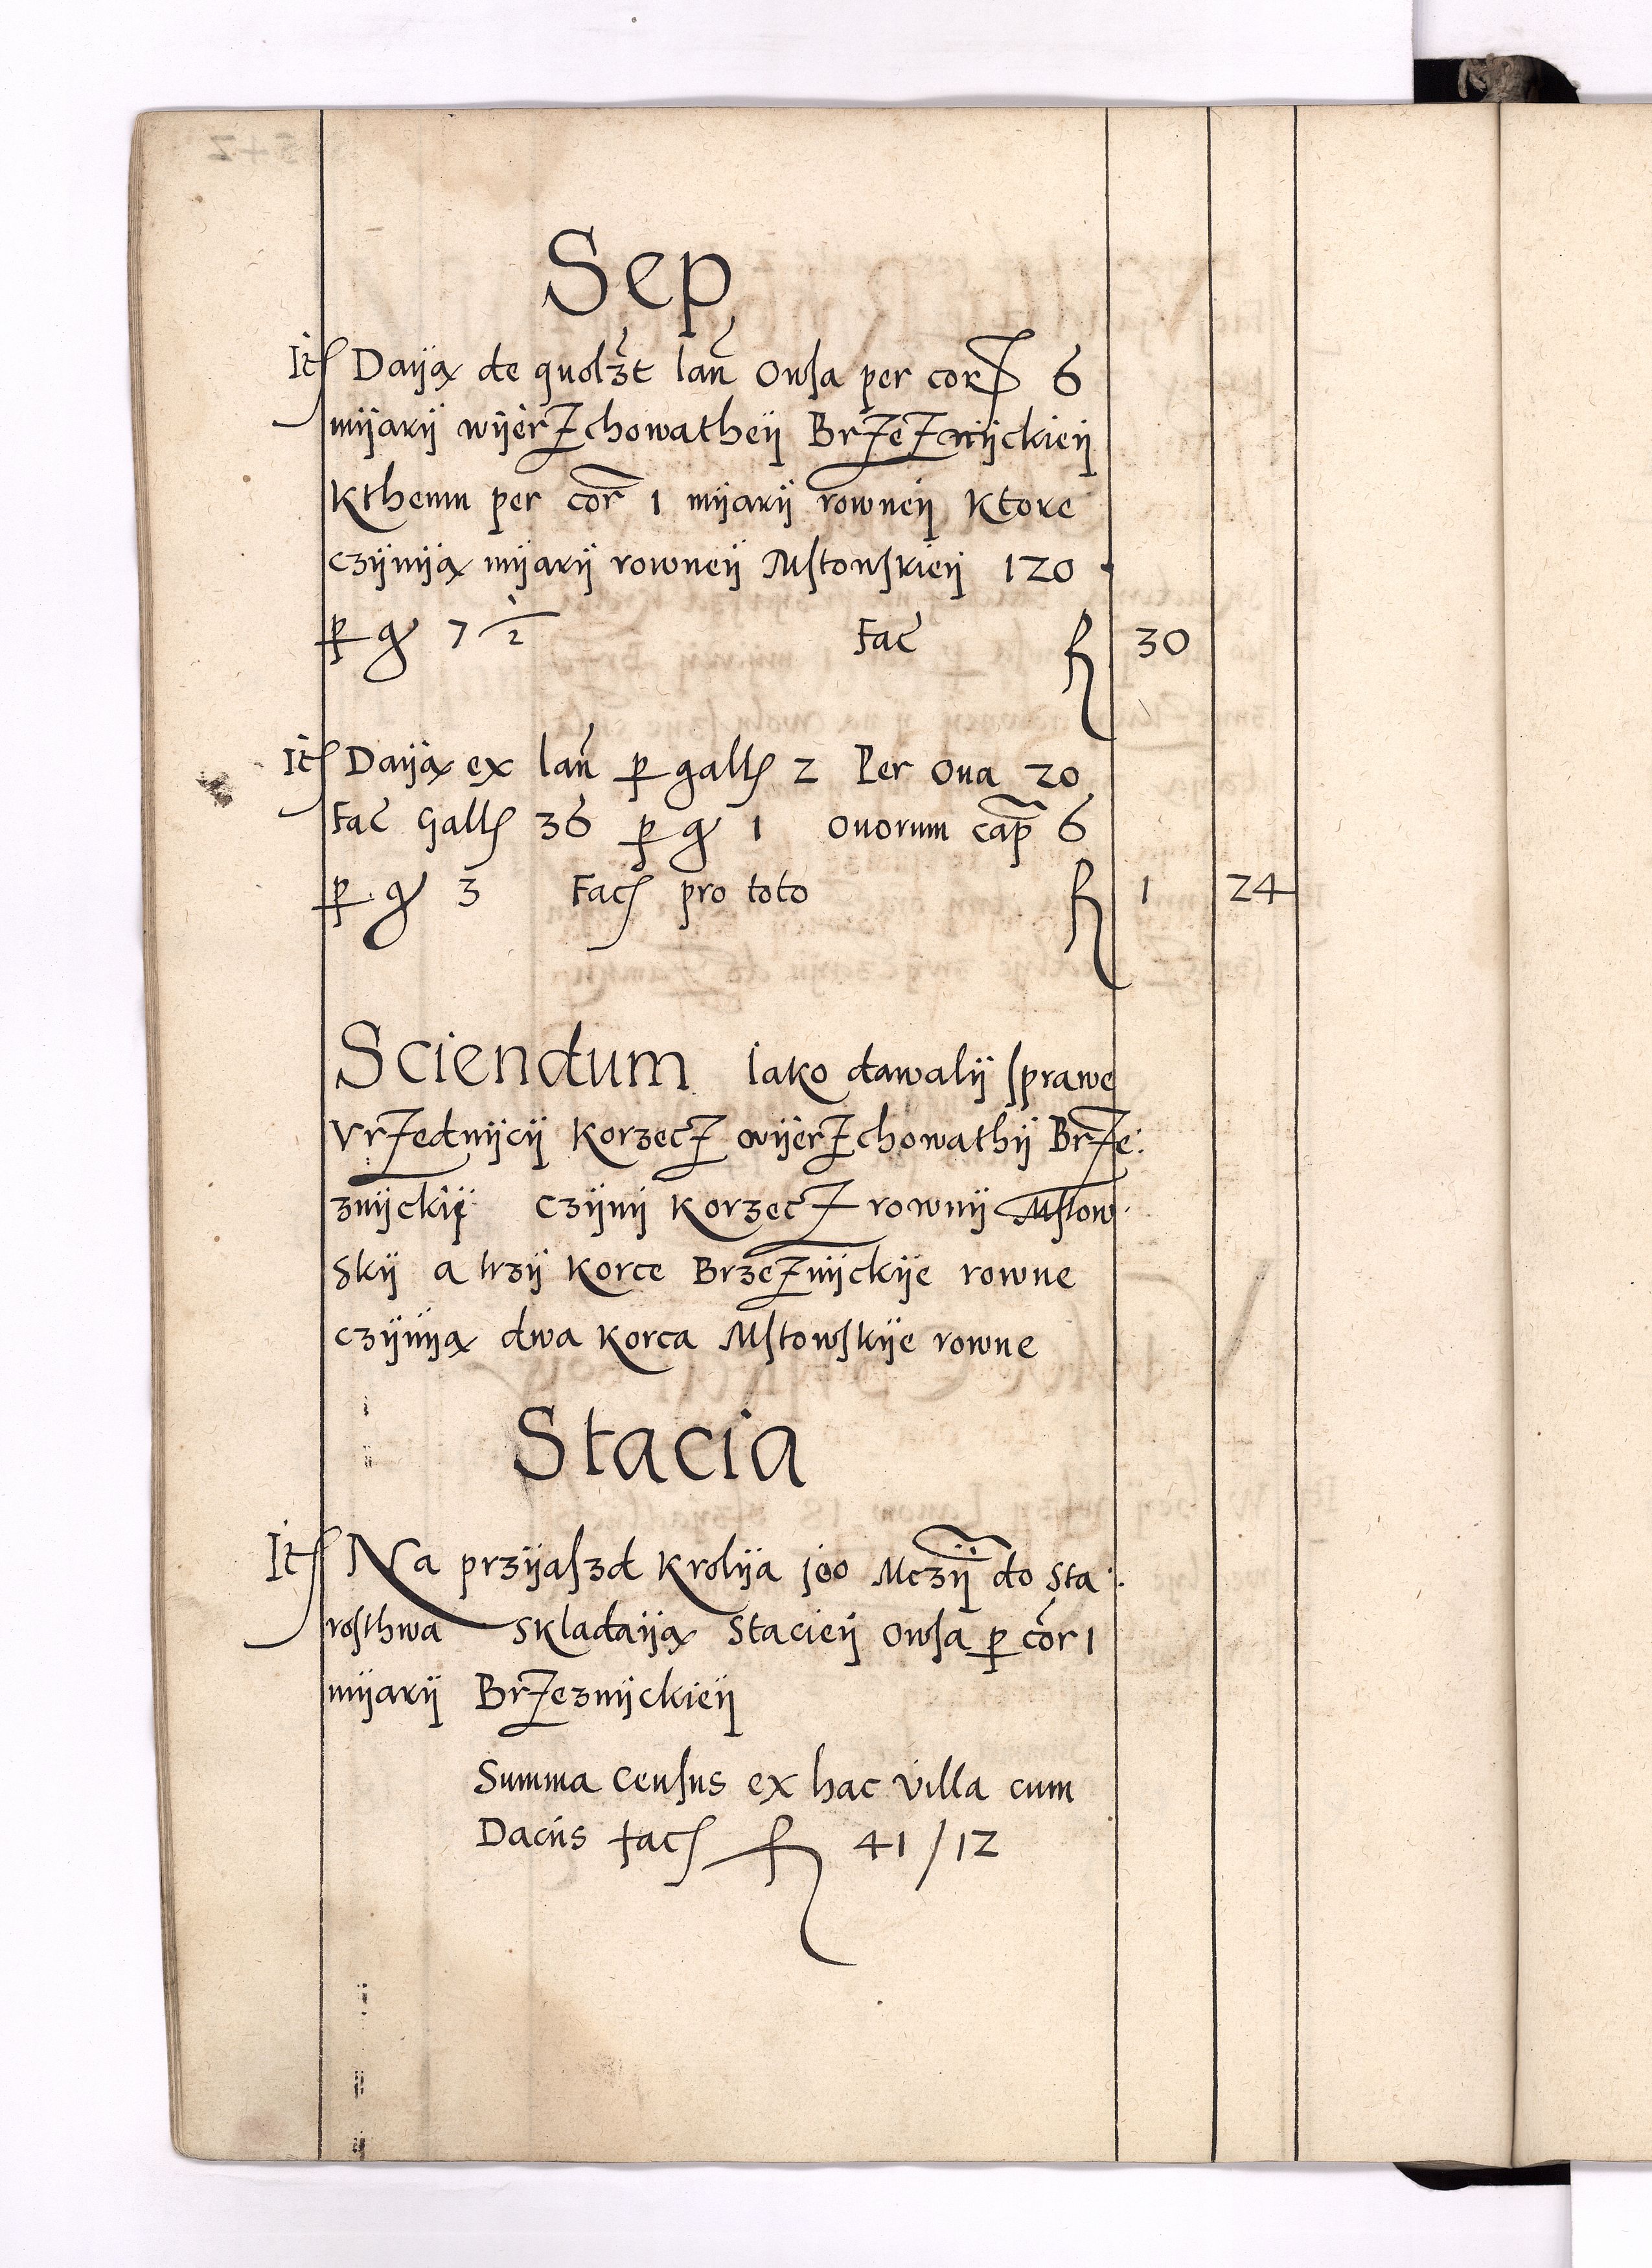 Sep
Itꝭ Daÿą de quolꝫt lañ Owsa per corꝭ 6
mÿarÿ wÿerżchowatheÿ Brzeżnÿckieÿ
Kthemu per cor̃ 1 mÿarÿ rowneÿ Ktore
czÿnÿą mÿarÿ rowneÿ Mstowskieÿ 120
ꝑ gr 7 1/2 Fac̃ fl 30
Itꝭ Daÿą ex lañ ꝑ gallꝭ 2 Per Oua 20
Fac̃ Gallꝭ 36 ꝑ gr 1 Ouorum cap̃ 6
ꝑ gr 3 Facꝭ pro toto fl 1 24
Sciendum Iako dawalÿ sprawe
Vrzednÿcÿ Korzecz wÿerzchowathÿ Brze:
znÿckiÿ czÿnÿ Korzecz rownÿ Mstow:
Skÿ a trzÿ Korce Brzeznÿckÿe rowne
czÿnÿą dwa Korca Mstowskÿe rowne
Stacia
Itꝭ Na przÿaszd Krolÿa jeo Mczÿ do Sta:
rosthwa Skladaÿą Stacieÿ Owsa ꝑ cor̃ 1
mÿarÿ Brzeznÿckieÿ
Summa Census ex hac Villa cum
Daciis facꝭ fl 41/12